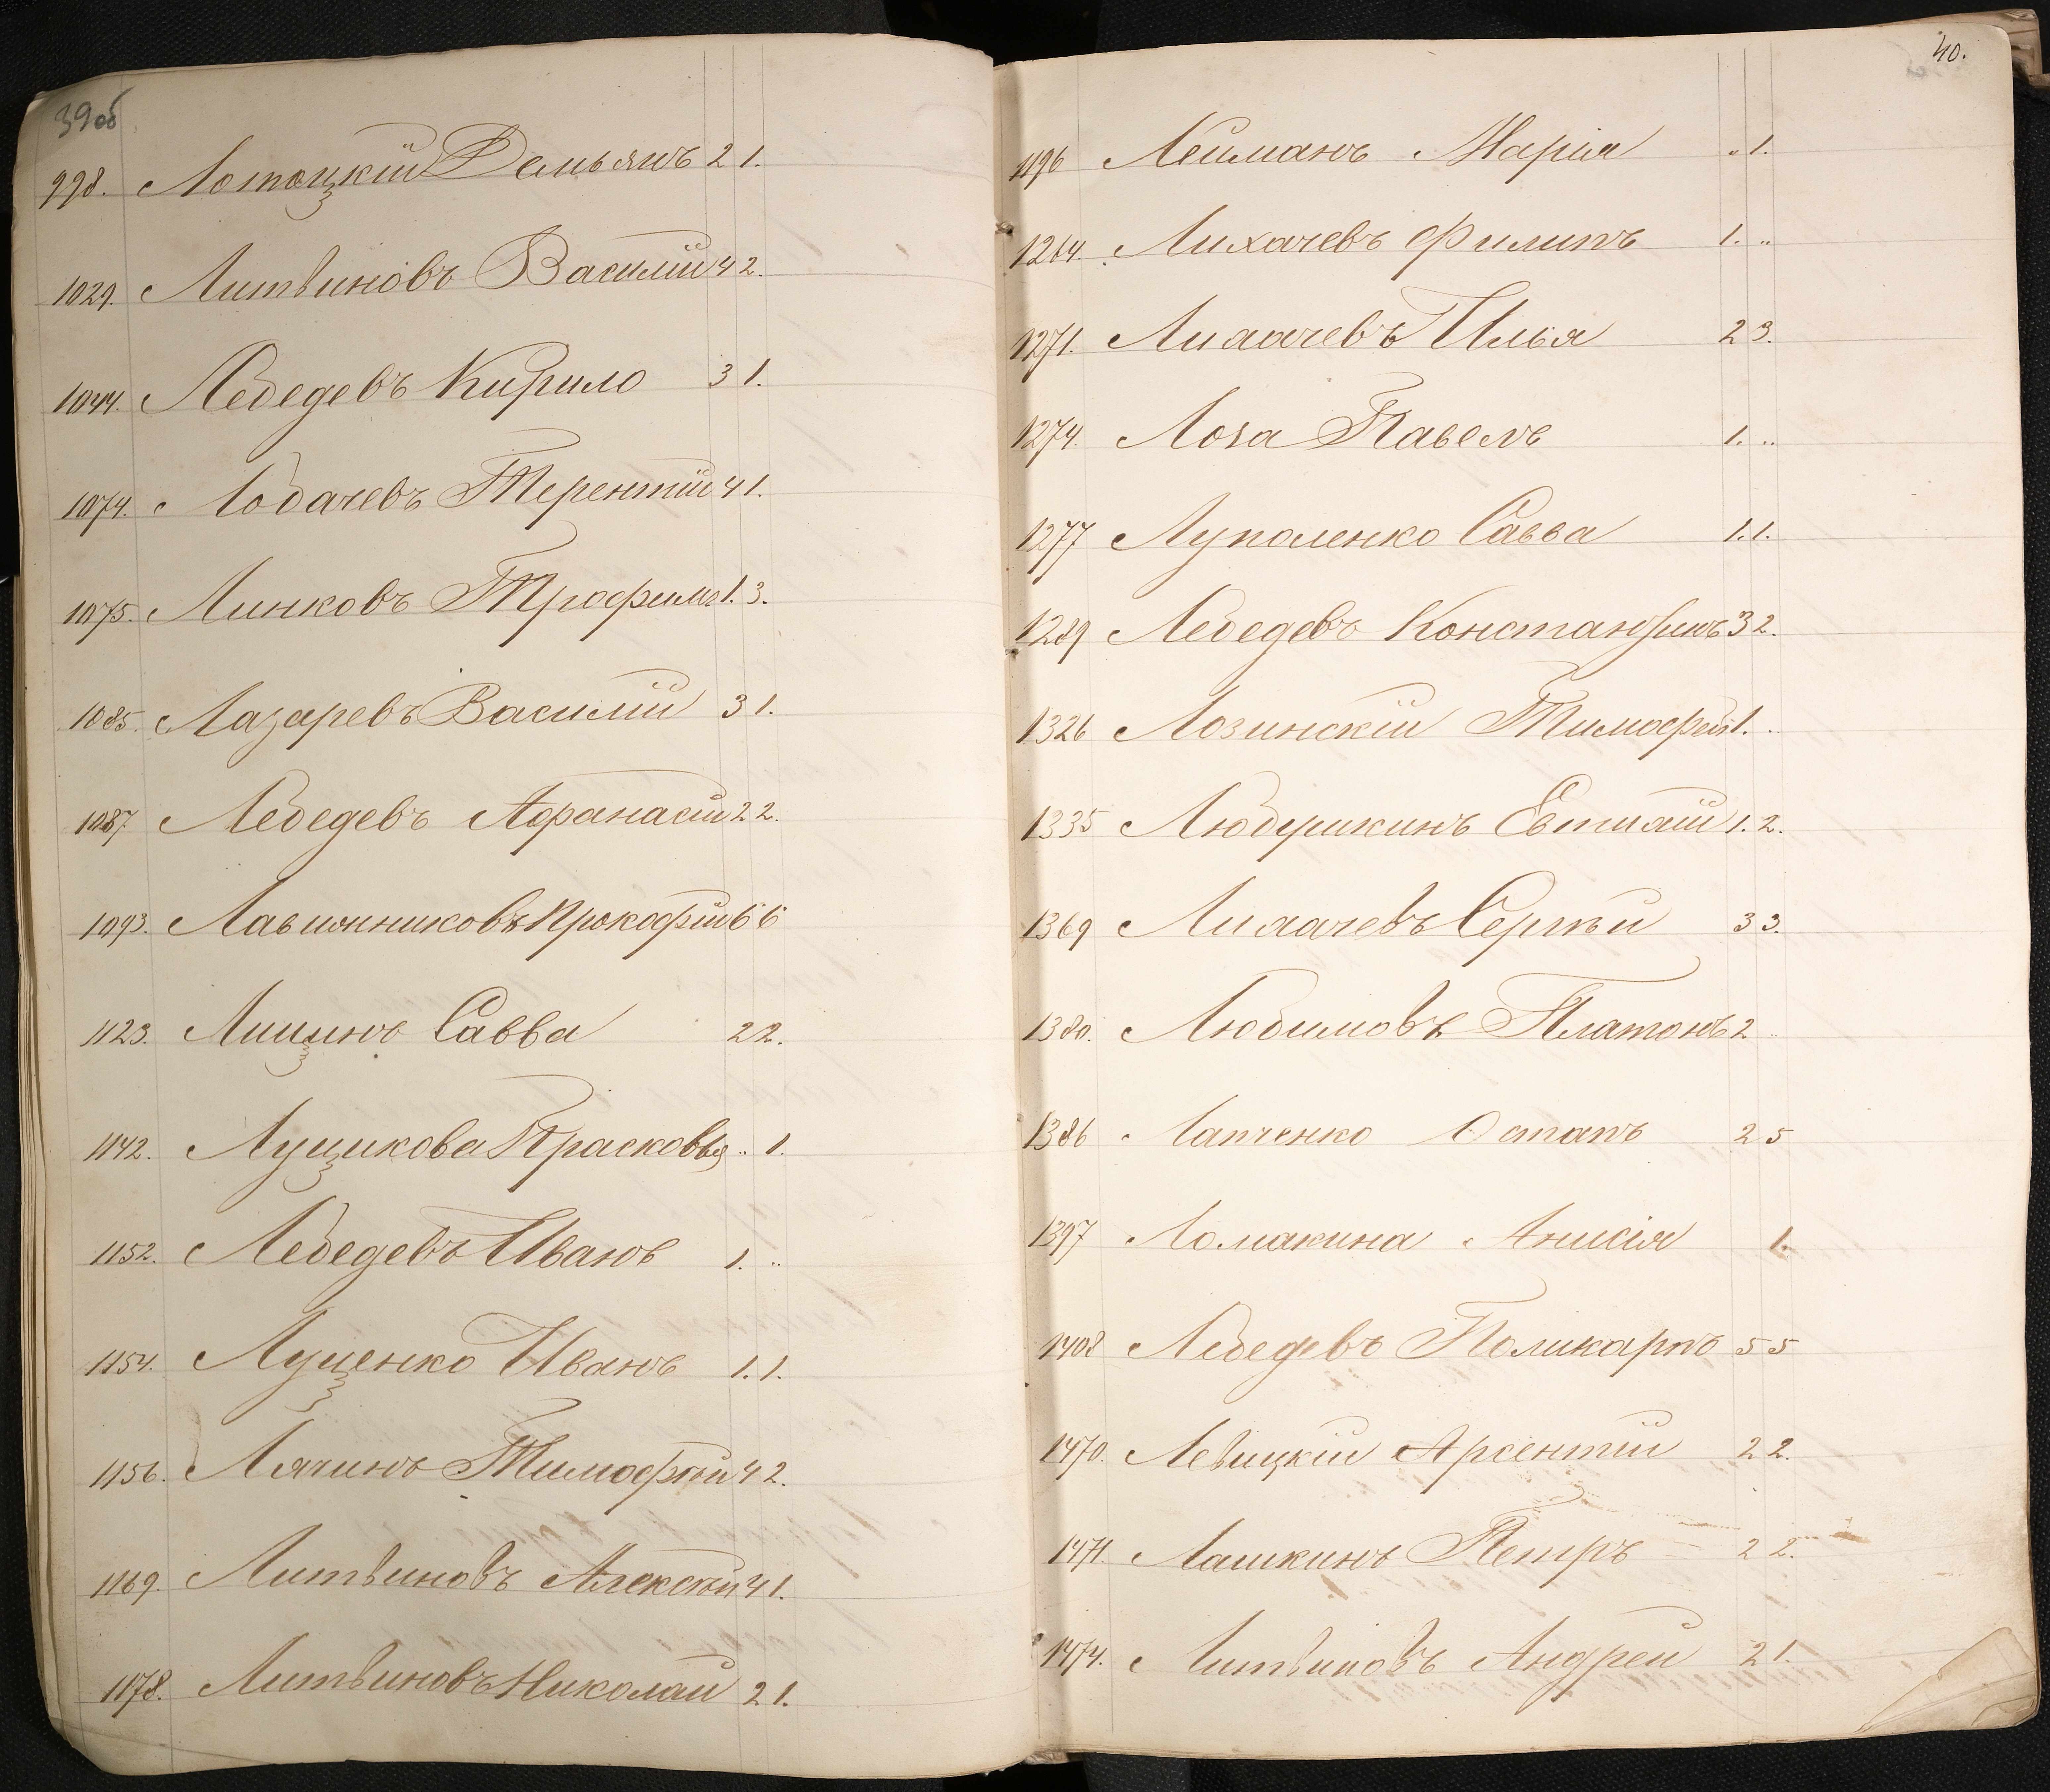 39об
998. Лотоцкій Демьянъ 2 1.
1029. Литвиновъ Василій 4 2.
1044. Лебедевъ Кирило 3 1.
1074. Лобачевъ Терентій 4 1.
1075. Линковъ Трофимъ 1. 3.
1085. Лазаревъ Василій 3 1.
1087. Лебедевъ Афанасій 2 2.
1093. Прокофій 6 6
1123. Савва 2 2.
1142. Лущикова Прасковья .. 1.
1152. Лебедевъ Иванъ 1. ..
1154. Луценко Иванъ 1. 1.
1156. Лячинъ Тимофѣй 4 2.
1169. Литвиновъ Алексѣй 4 1.
1178. Литвиновъ Николай 2 1.
40.
1196 Лейманъ Марія .. 1.
1264. Лихачевъ Филипъ 1. ..
1271. Лихачевъ Илья 2 3.
1274. Лоза Павелъ 1. ..
1277 Луполенко Савва 1. 1.
1289 Лебедевъ Константинъ 3 2.
1326 Лозинскій Тимофей 1. ..
1335 Евтихій 1. 2.
1369 Лихачевъ Сергѣй 3 3.
1380. Любимовъ Платонъ 2 ..
1386 Лапченко Остапъ 2 5
1397 Ломакина Анисія 1.
1408 Лебедевъ Поликарпъ 5 5
1470. Левицкій Арсентій 2 2.
1471. Лашкинъ Петръ 2 2.
1474. Литвиновъ Андрей 2 1.